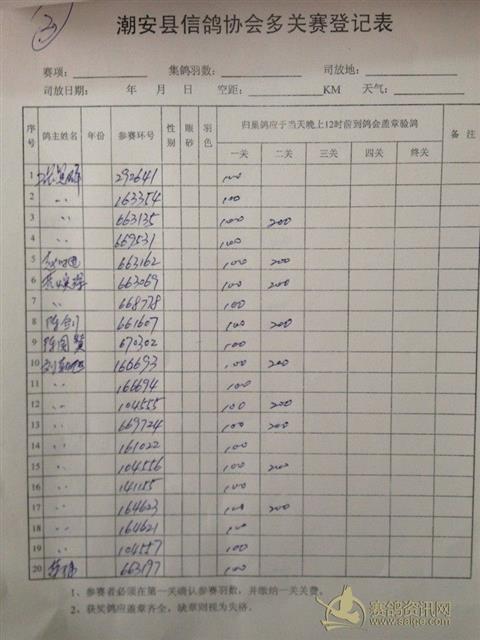 ③
潮安县信鸽协会多关赛登记表
赛项： 集鸽羽数： 司放地：
司放日期： 年 月 日 空距： KM 天气：
序号 鸽主姓名 年份 参赛环号 性别 眼砂 羽色 归巢鸽应于当天晚上12时前到鸽会盖章验鸽 备注
一关 二关 三关 四关 终关
1 292641 100
2 〃 163354 100
3 〃 663135 100 200
4 〃 669531 100
5 663162 100 200
6 663069 100 200
7 〃 668778 100
8 陈剑 661607 100 200
9 陈国贤 670302 100
10 166693 100 200
11 〃 166694 100
12 〃 104555 100 200
13 〃 669724 100 200
14 〃 161022 100
15 〃 104556 100 200
16 〃 141155 100
17 〃 164623 100 200
18 〃 164621 100
19 〃 104557 100
20 663197 100
1、参赛者必须在第一关确认参赛羽数，并缴纳一关关费。
2、获奖鸽应盖章齐全，缺章则视为失格。
赛鸽资讯网
www.saige.com